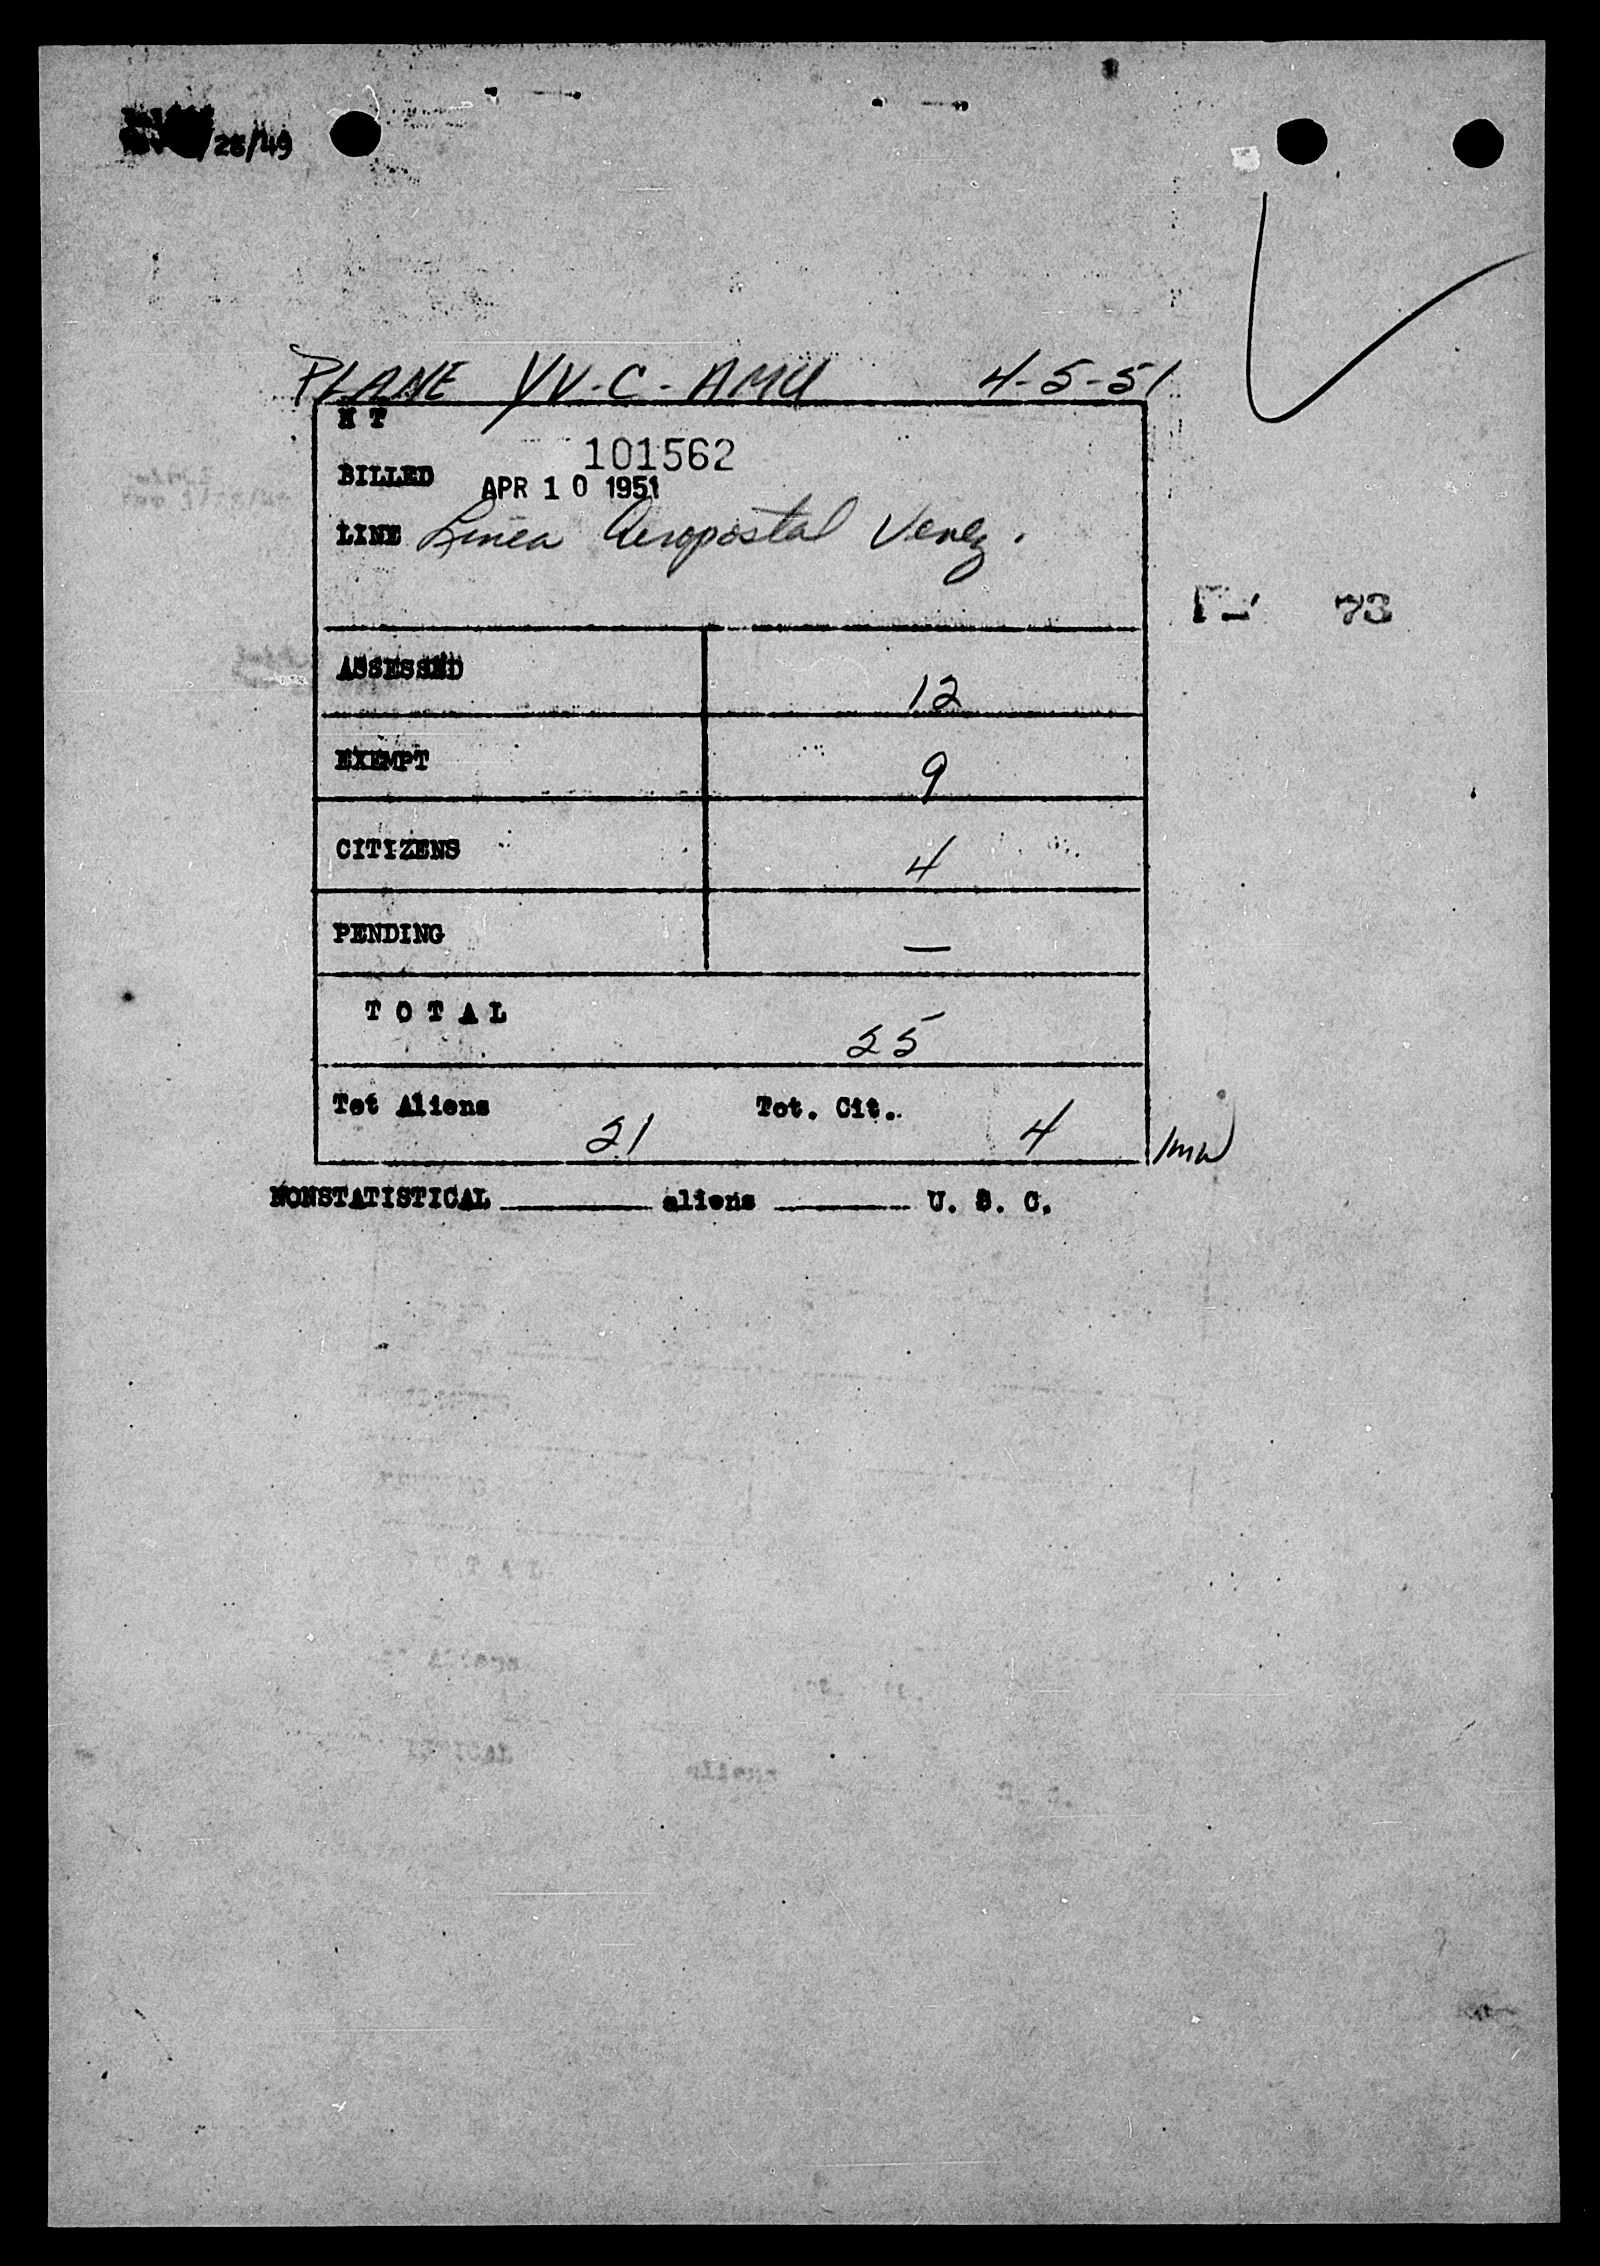 28/49
PLANE YV-C-AMU 4-5-51
H T
101562
BILLED APR 10 1951
LINE Linea Aeropostal Venez.
73
ASSESSED 12
EXEMPT 9
CITIZENS 4
PENDING —
T O T A L 25
Tot Aliens 21 Tot. Cit. 4
NONSTATISTICAL ________ aliens ________ U. S. C.